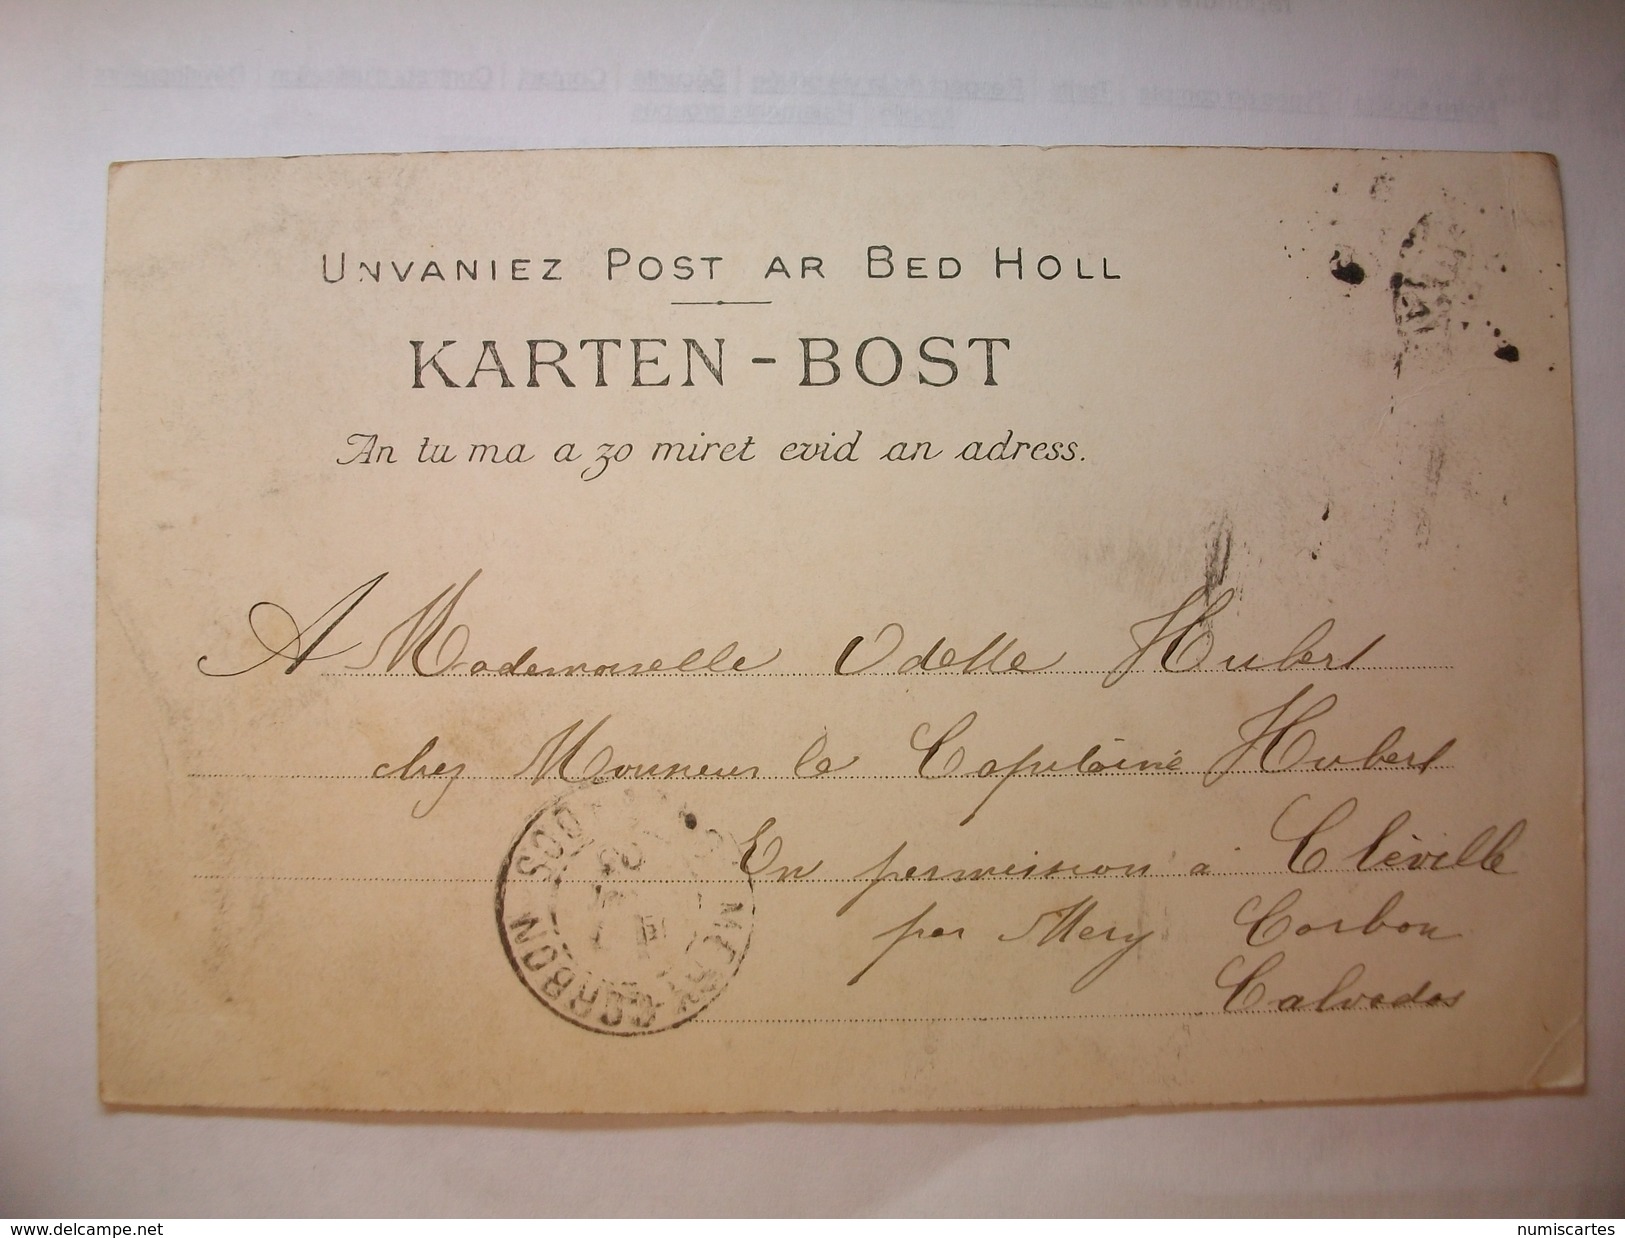 UNVANIEZ POST AR BED HOLL
KARTEN-BOST
An tu ma a zo miret evid an adress.
A Mademoiselle Odette Hubert
chez Monsieur le Capitaine Hubert
En permission à Cléville
par Mery Corbon
Calvados
CORBON
www.delcampe.net
numiscartes